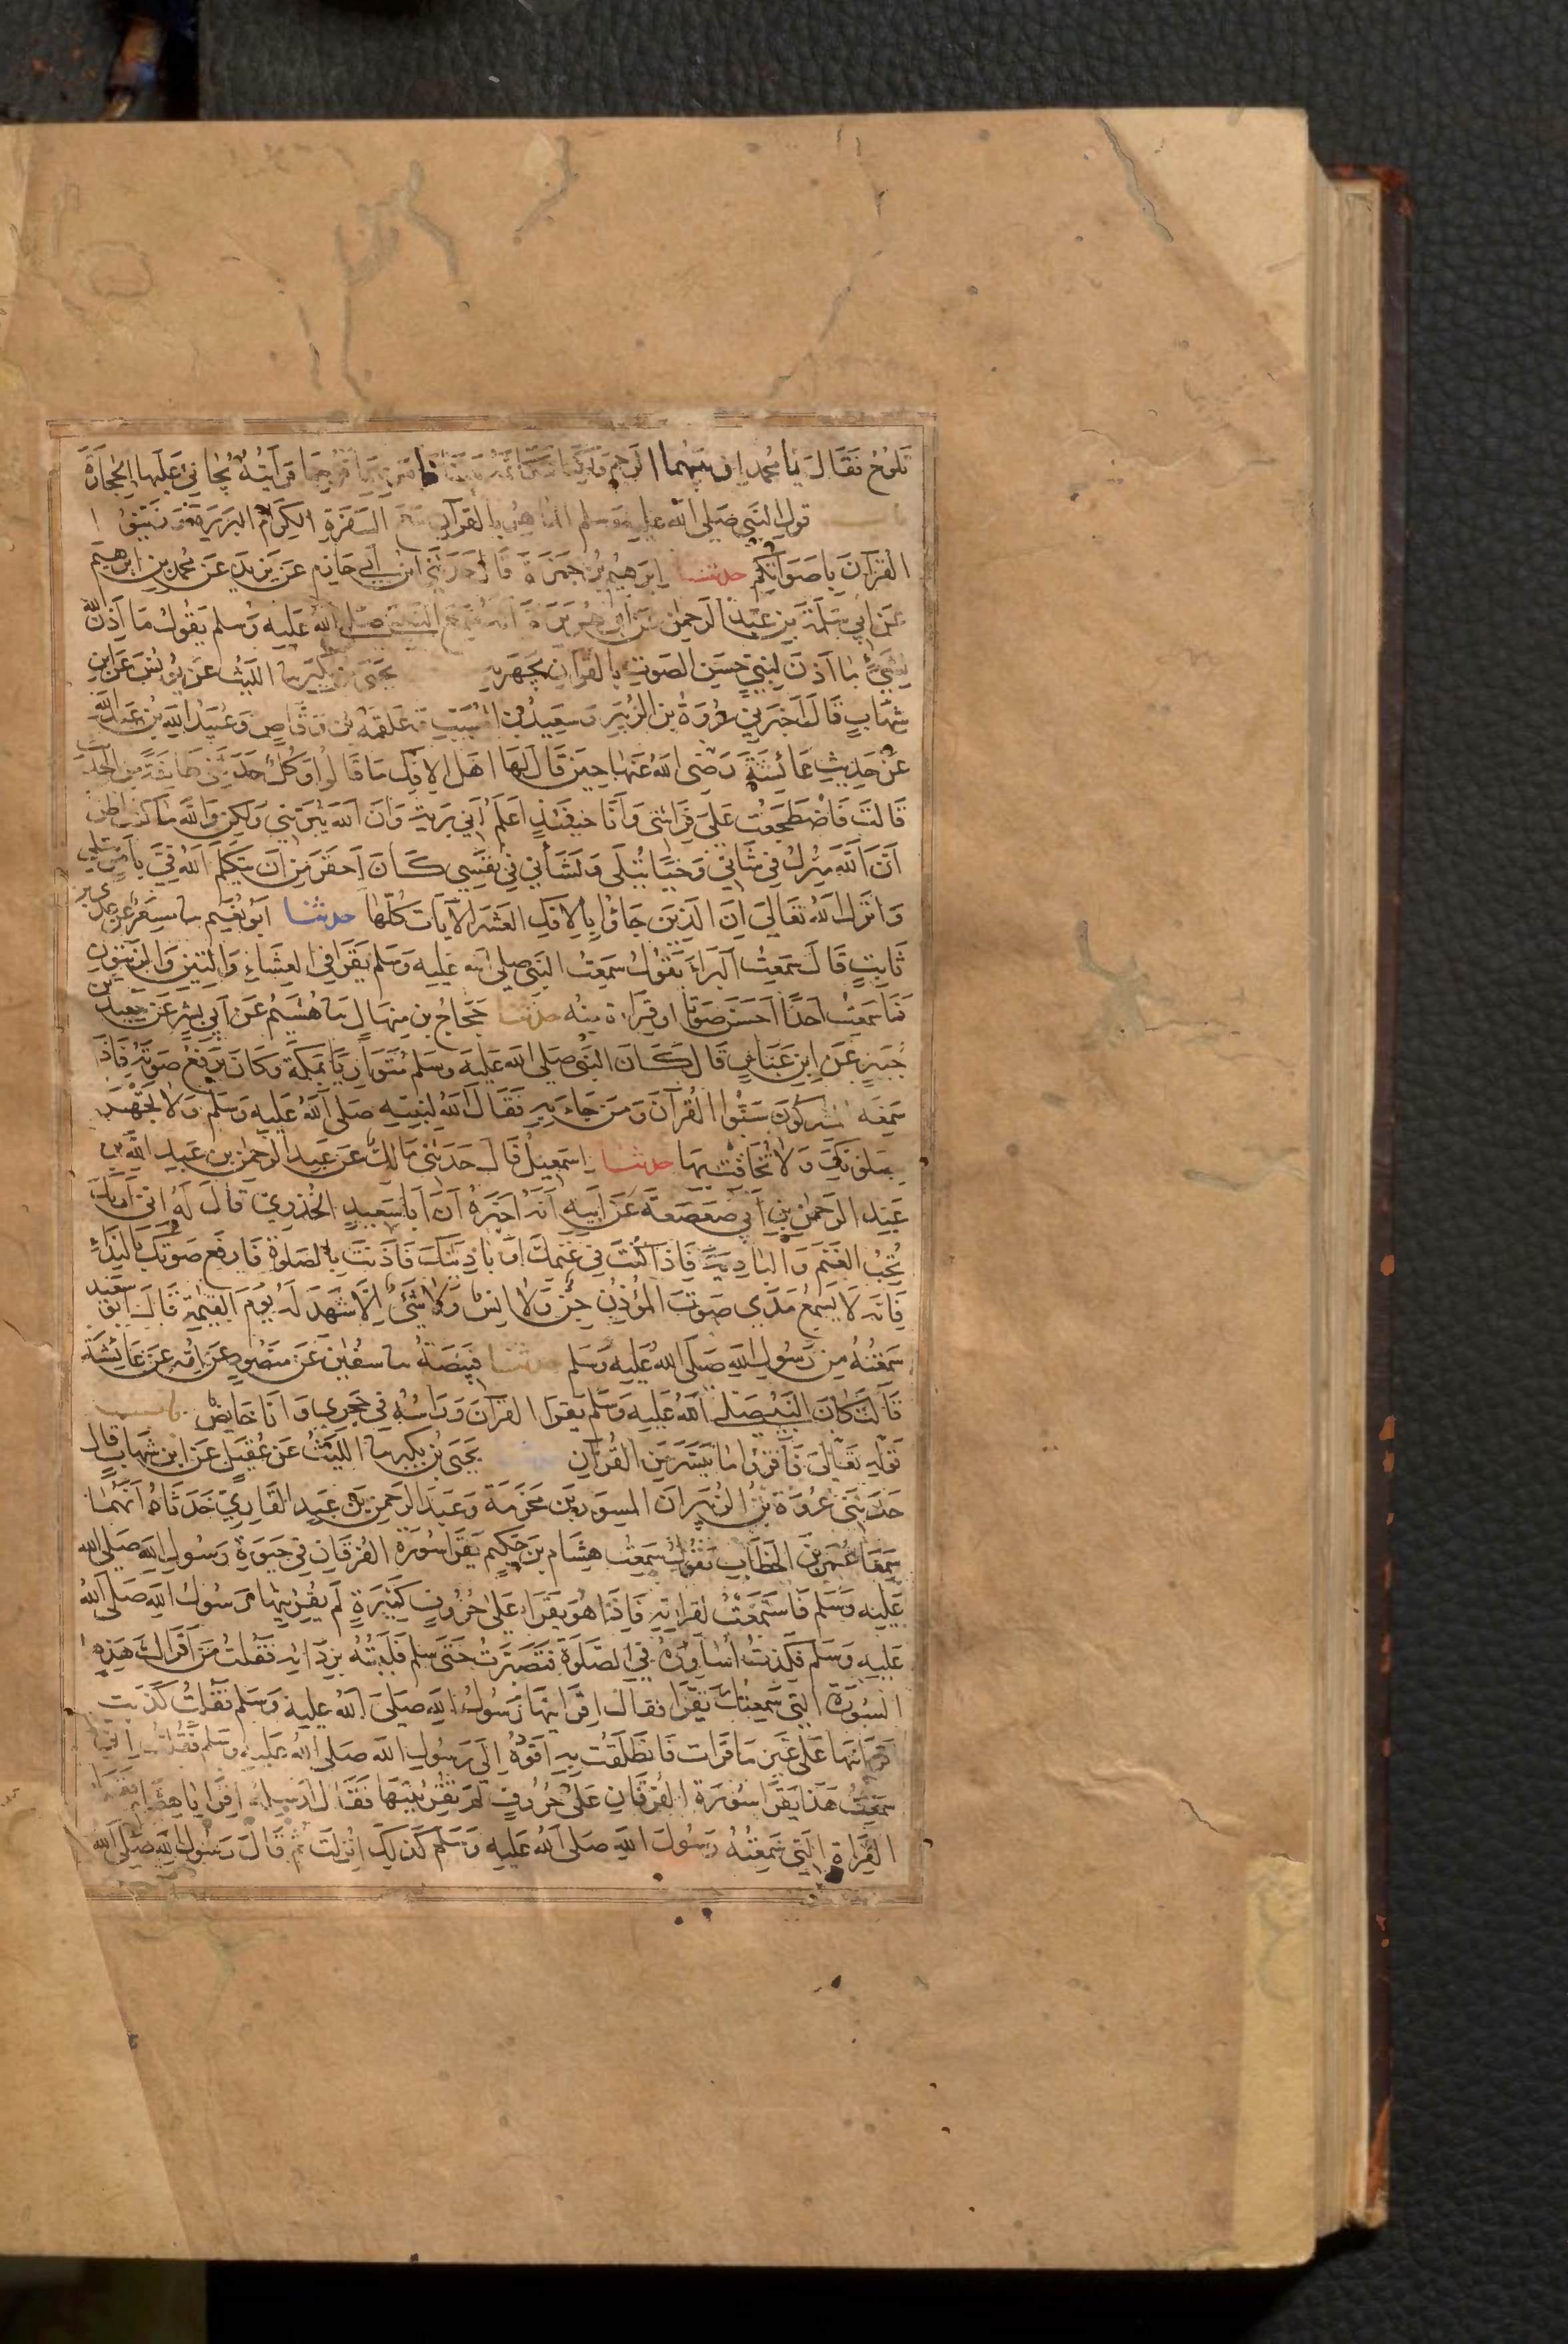 تلوح فقال يا محمد ان بينهما الرجم ولكنا نتكاتمه بيننا فامر بهما فرجما فرأيته يجاني عليها الحجارة
باب قول النبي صلى الله عليه وسلم الماهر بالقرآن مع السفرة الكرام البررة وزينوا
القرآن باصواتكم حدثنا ابرهيم بن حمزة قال حدثني ابن ابي حازم عن يزيد عن محمد بن ابرهيم
عن ابي سلمة بن عبد الرحمن عن ابي هريرة انه سمع النبي صلى الله عليه وسلم يقول ما اذن الله
لشيء ما اذن لنبي حسن الصوت بالقرآن يجهر به يحيى بن بكير سا الليث عن يونس عن ابن
شهاب قال اخبرني عروة بن الزبير وسعيد بن المسيب وعلقمة بن وقاص وعبيد الله بن عبد الله
عن حديث عائشة رضى الله عنها حين قال لها اهل الافك ما قالوا وكل حدثني طائفة من الحديث
قالت فاضطجعت على فراشى وانا حينئذ اعلم اني برية وان الله يبرئني ولكن والله ما كنت اظن
ان الله ينزل في شاني وحيا يتلى ولشأني في نفسي كان احقر من ان يتكلم الله في بامر يتلى
وانزل الله تعالى ان الذين جاؤا بالافك العشر الآيات كلها حدثنا ابو نعيم سا مسعر عن عدى بن
ثابت قال سمعت البراء يقول سمعت النبي صلى الله عليه وسلم يقرا في العشاء والتين والزيتون
فما سمعت احدا احسن صوتا او قراءة منه حدثنا حجاج بن منهال سا هشيم عن ابي بشر عن سعيد بن
جبير عن ابن عباس قال كان النبي صلى الله عليه وسلم متواريا بمكة وكان يرفع صوته فاذا
سمعه المشركون سبوا القرآن ومن جاء به فقال الله لنبيه صلى الله عليه وسلم ولا تجهر
بصلوتك ولا تخافت بها حدثنا اسمعيل قال حدثنى مالك عن عبد الرحمن بن عبد الله بن
عبد الرحمن بن ابي صعصعة عن ابيه انه اخبره ان ابا سعيد الخدري قال له انى اراك
تحب الغنم والبادية فاذا كنت في غنمك او باديتك فاذنت بالصلوة فارفع صوتك بالنداء
فانه لا يسمع مدى صوت المؤذن جن ولا انس ولا شيء الا شهد له يوم القيمة قال ابو سعيد
سمعته من رسول الله صلى الله عليه وسلم حدثنا قبيصة سا سفين عن منصور عن امه عن عائشة
قالت كان النبي صلى الله عليه وسلم يقرا القرآن وراسه في حجري وانا حايض باب
قوله تعالى فاقرؤا ما تيسر من القرآن يحيى بن بكير سا الليث عن عقيل عن ابن شهاب قال
حدثنى عروة بن الزبير ان المسور بن مخرمة وعبد الرحمن بن عبد القاري حدثاه انهما
سمعا عمر بن الخطاب يقول سمعت هشام بن حكيم يقرا سورة الفرقان في حيوة رسول الله صلى الله
عليه وسلم فاستمعت لقراته فاذا هو يقراء على حروف كثيرة لم يقرئنيها رسول الله صلى الله
عليه وسلم فكدت اساوره في الصلوة فتصبرت حتى سلم فلببته بردائه فقلت من اقراك هذه
السورة التى سمعتك تقرا فقال اقرانيها رسول الله صلى الله عليه وسلم فقلت كذبت
اقرانيها على غير ما قرات فانطلقت به اقوده الى رسول الله صلى الله عليه وسلم فقلت انى
سمعت هذا يقرا سورة الفرقان على حروف لم تقرئنيها فقال ارسله اقرا يا هشام فقرا
القراة التى سمعته رسول الله صلى الله عليه وسلم كذلك انزلت ثم قال رسول الله صلى الله